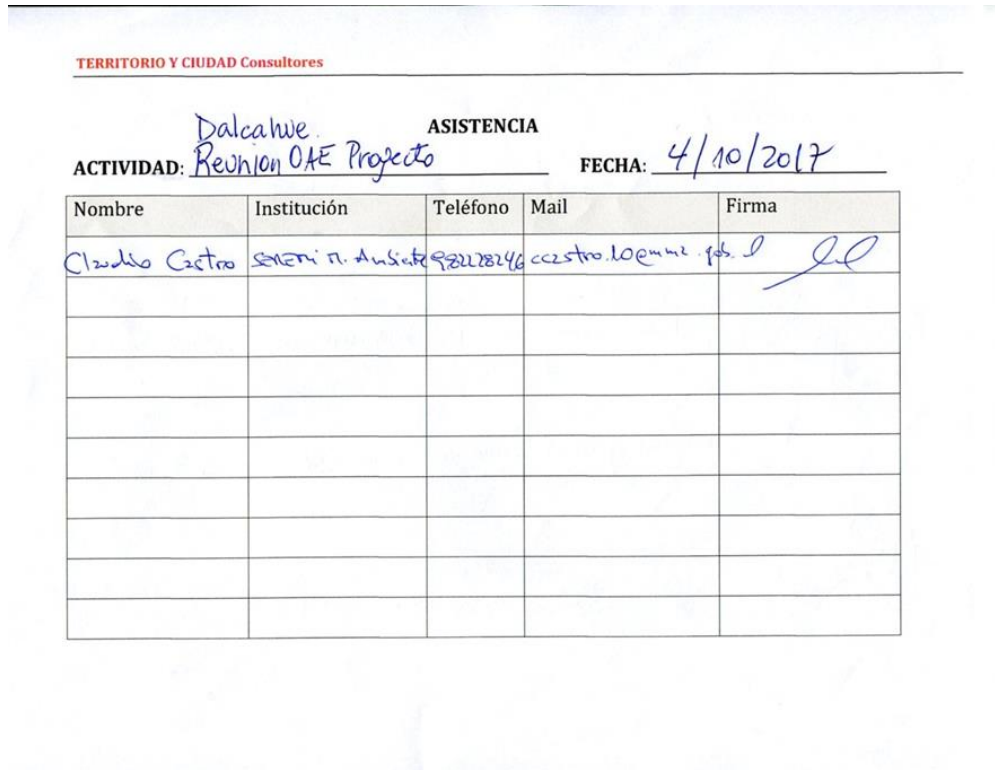 TERRITORIO Y CIUDAD Consultores
ASISTENCIA
ACTIVIDAD: Dalcahue.
Reunion OAE Proyecto
FECHA: 4/10/2017
Nombre Institución Teléfono Mail Firma
Claudio Castro SEREMI M. Ambiente 982278246 ccastro.10@mma.gob.cl